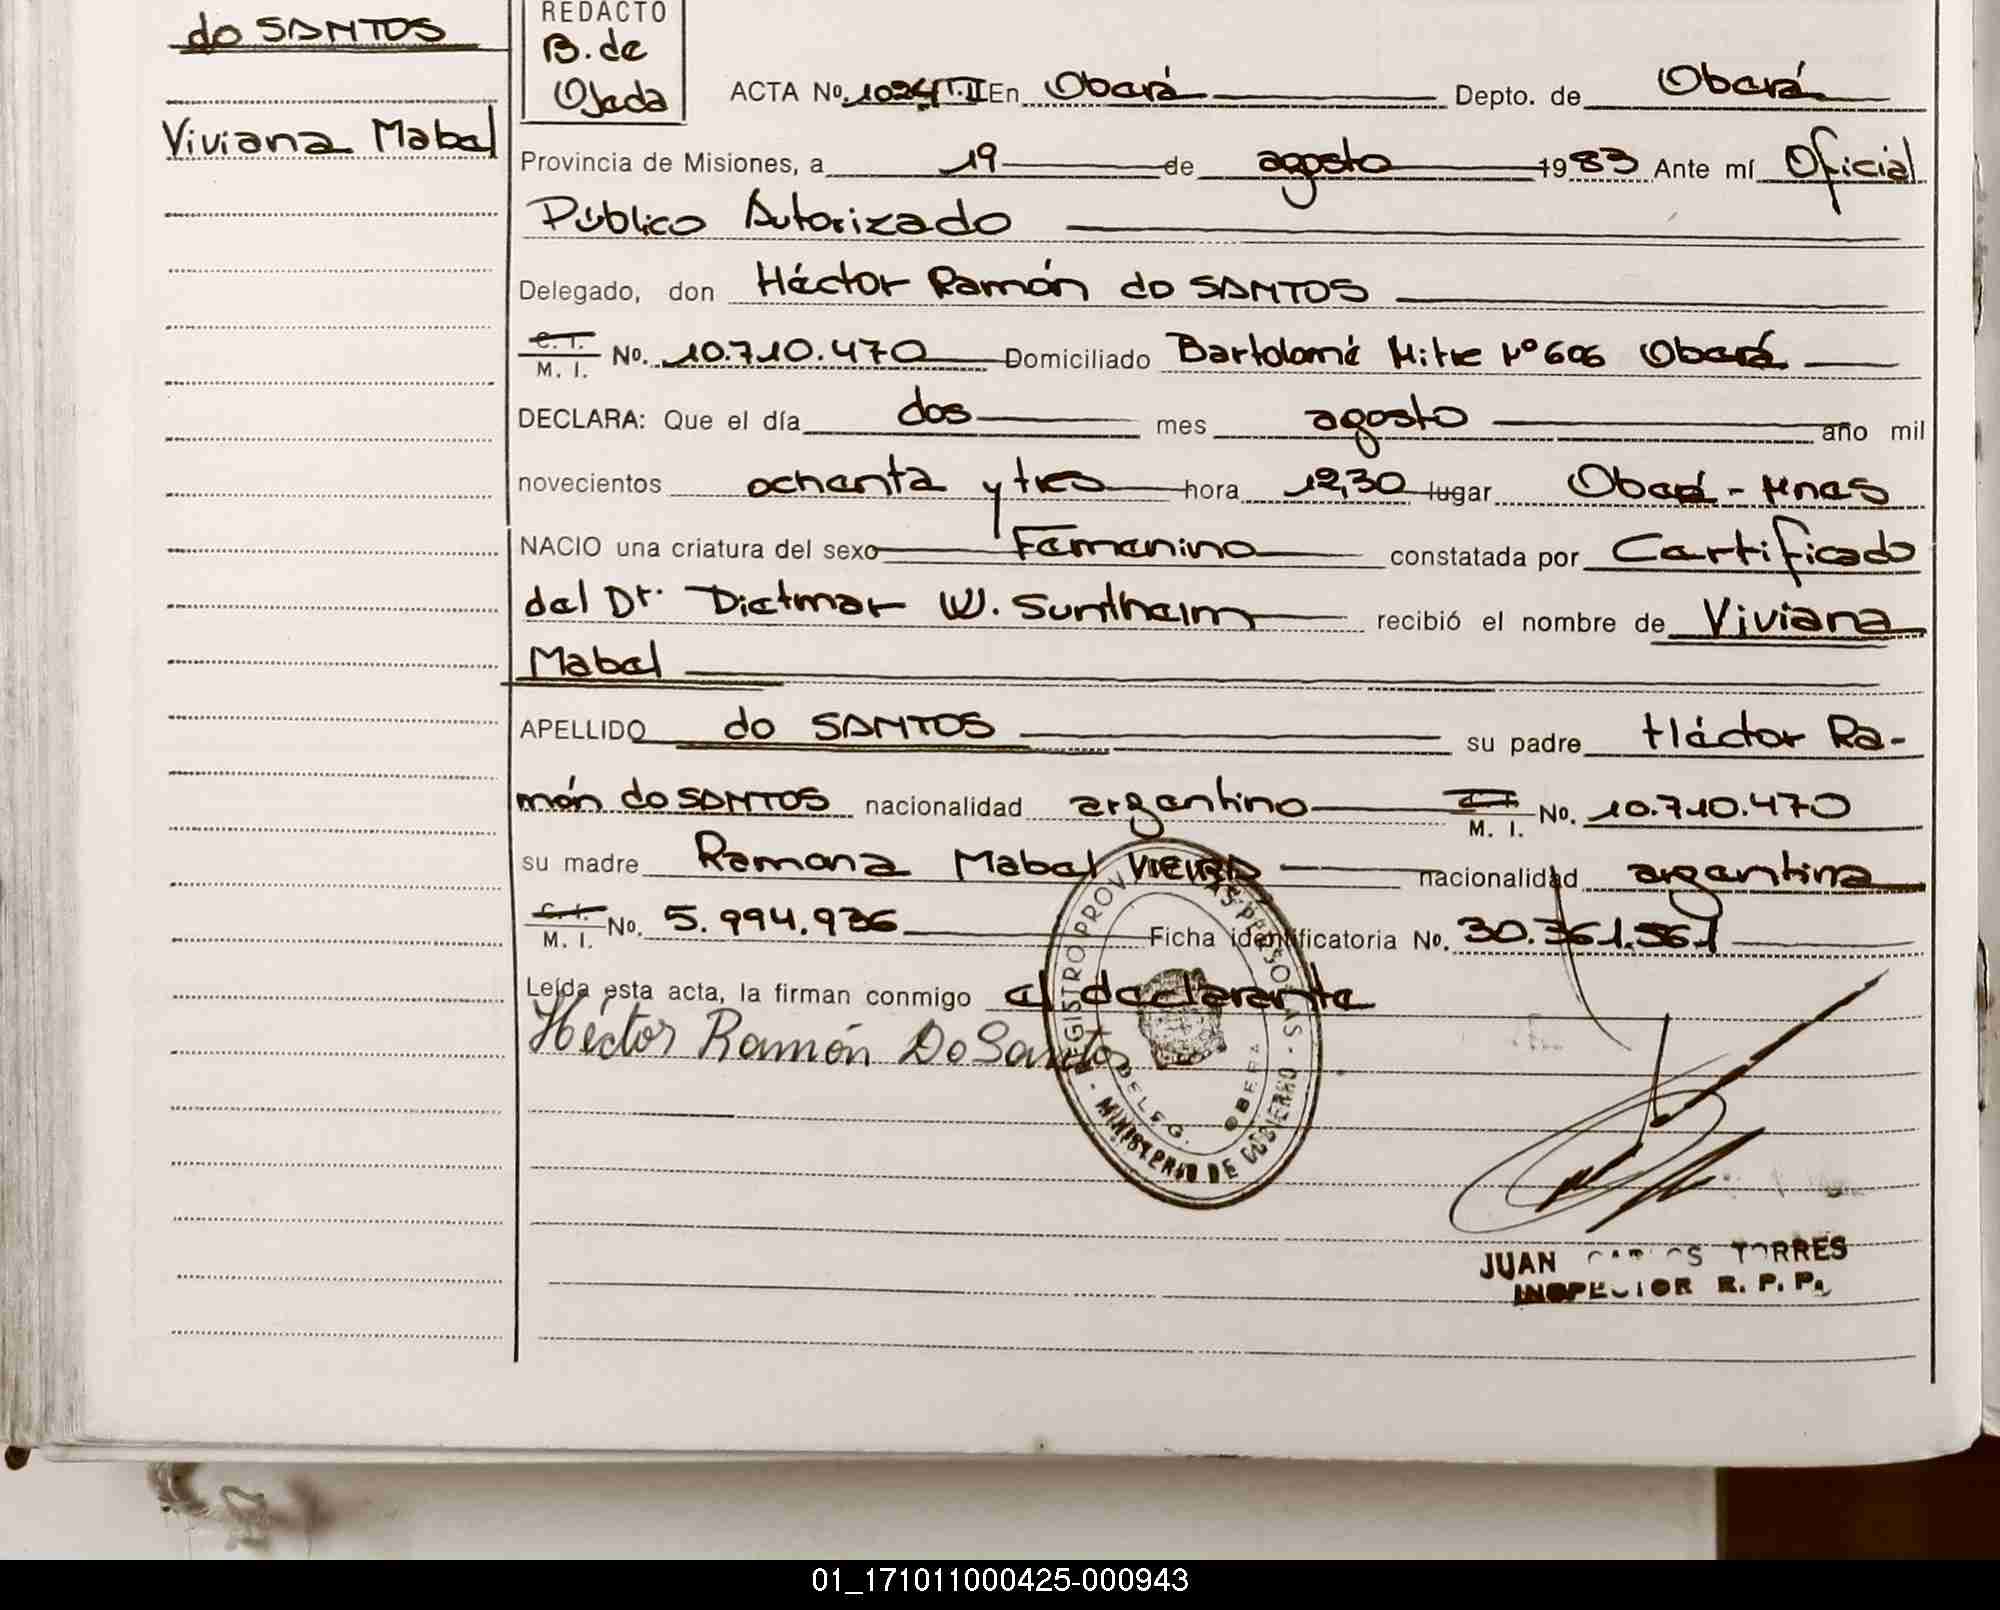 do SANTOS
Viviana Mabel
REDACTO
B. de
Ojeda
ACTA No. 1024 T. II En Oberá Depto. de Oberá
Provincia de Misiones, a 19 de agosto 1983 Ante mí Oficial
Público Autorizado
Delegado, don Héctor Ramón do SANTOS
C. I.
M. I. No. 10.710.470 Domiciliado Bartolomé Mitre Nº 606 Oberá
DECLARA: Que el día dos mes agosto año mil
novecientos ochenta y tres hora 12,30 lugar Oberá - Mnes
NACIO una criatura del sexo Femenino constatada por Certificado
del Dr. Dietmar W. Suntheim recibió el nombre de Viviana
Mabel
APELLIDO do SANTOS su padre Héctor Ra-
món do SANTOS nacionalidad argentino C. I. M. I. No. 10.710.470
su madre Ramona Mabel VIEIRA nacionalidad argentina
C. I.
M. I. No. 5.994.936 Ficha identificatoria No. 30.361.561
Leída esta acta, la firman conmigo el declarante
Héctor Ramón Do Santos
REGISTRO PROV. PERSONAS - MINISTERIO DE GOBIERNO -
DELEG. OBERA
JUAN CARLOS TORRES
INSPECTOR R. P. P.
01_171011000425-000943